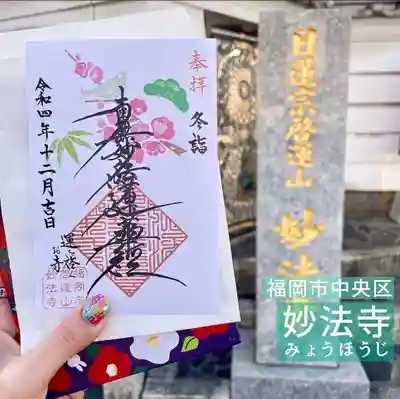 奉拝
冬詣
南無妙法蓮華経
令和四年十二月吉日
福岡
啓運山
妙法寺
日蓮宗啓運山
妙法
福岡市中央区
妙法寺
みょうほうじ